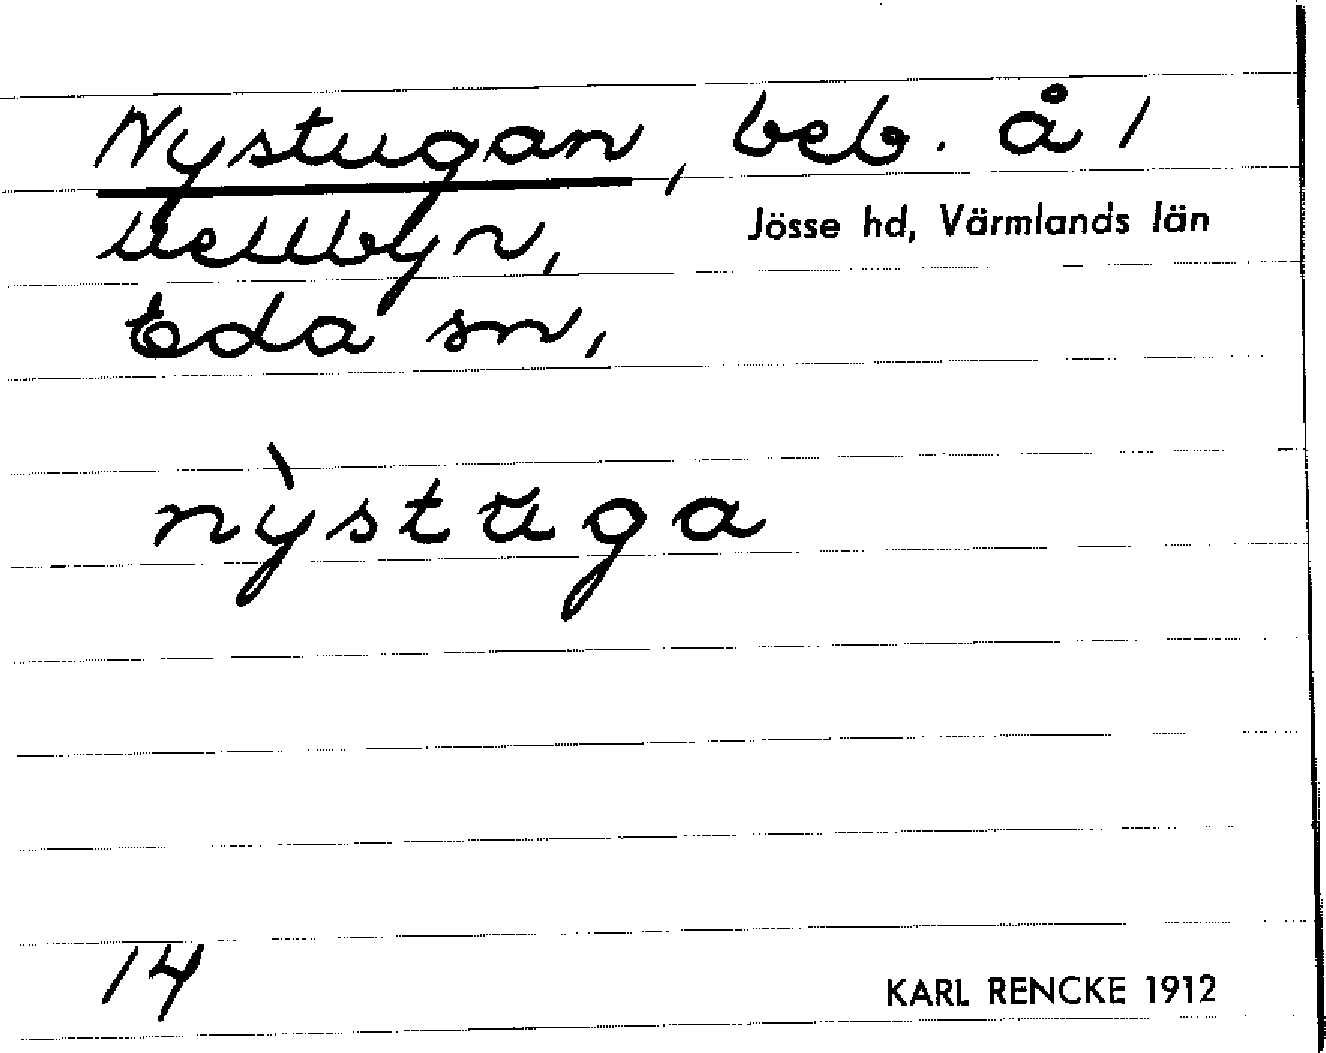 Nystugan, beb. å 1
Mellbyn,
Jösse hd, Värmlands län
Eda sn,
nỳstŭga
14
KARL RENCKE 1912